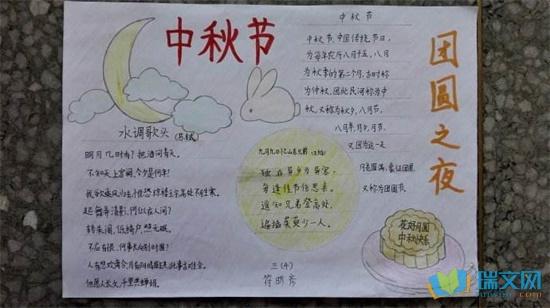 中秋节
团圆之夜
中秋节
中秋节,中国传统节日,
为每年农历八月十五,八月
为秋季的第二个月,古时称
为仲秋,因此民间称为中
秋,又称为秋夕,八月节,
八月半,月夕,月节,
又因为这一天
月亮圆满,象征团圆
又称为团圆节。
水调歌头(苏轼)
明月几时有?把酒问青天。
不知天上宫阙,今夕是何年?
我欲乘风归去,惟恐琼楼玉宇,高处不胜寒。
起舞弄清影,何似在人间?
转朱阁,低绮户,照无眠。
不应有恨,何事长向别时圆?
人有悲欢离合,月有阴晴圆缺,此事古难全。
但愿人长久,千里共婵娟。
九月九日忆山东兄弟(王维)
独在异乡为异客,
每逢佳节倍思亲。
遥知兄弟登高处,
遍插茱萸少一人。
三(4)
符明
花好月圆
中秋快乐
瑞文网